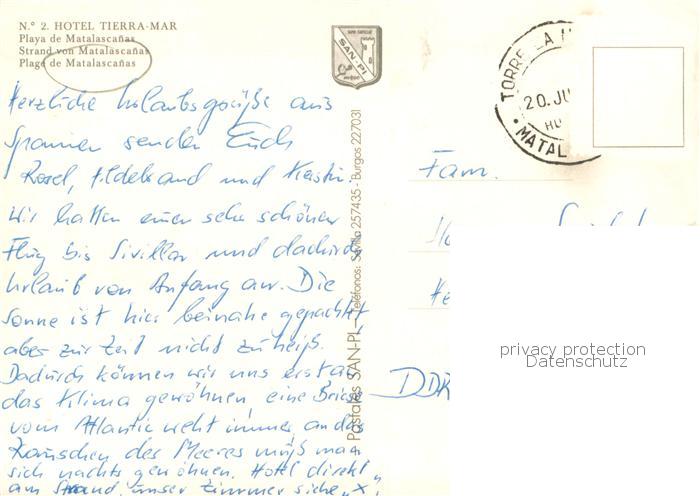 N.° 2. HOTEL TIERRA-MAR
Playa de Matalascañas
Strand von Matalascañas
Plage de Matalascañas
SAN-PI
TORRE LA H
20. JU
HU
MATAL
Herzliche Urlaubsgrüße aus
Spanien senden Euch
Rosel, Hildebrand und Kerstin.
Wir hatten einen sehr schönen
Flug bis Sivilla und dadurch
Urlaub von Anfang an. Die
Sonne ist hier beinahe gepachtet,
aber zur Zeit nicht zu heiß.
Dadurch können wir uns erst an
das Klima gewöhnen eine Briese
vom Atlantic weht immer an das
Rauschen des Meeres muß man
sich nachts gewöhnen. Hotel direkt
am Strand, unser Zimmer siehe „x"
Postales SAN-PI, Teléfonos: Sevilla 257435 - Burgos 227031
Fam.
DDR
privacy protection
Datenschutz